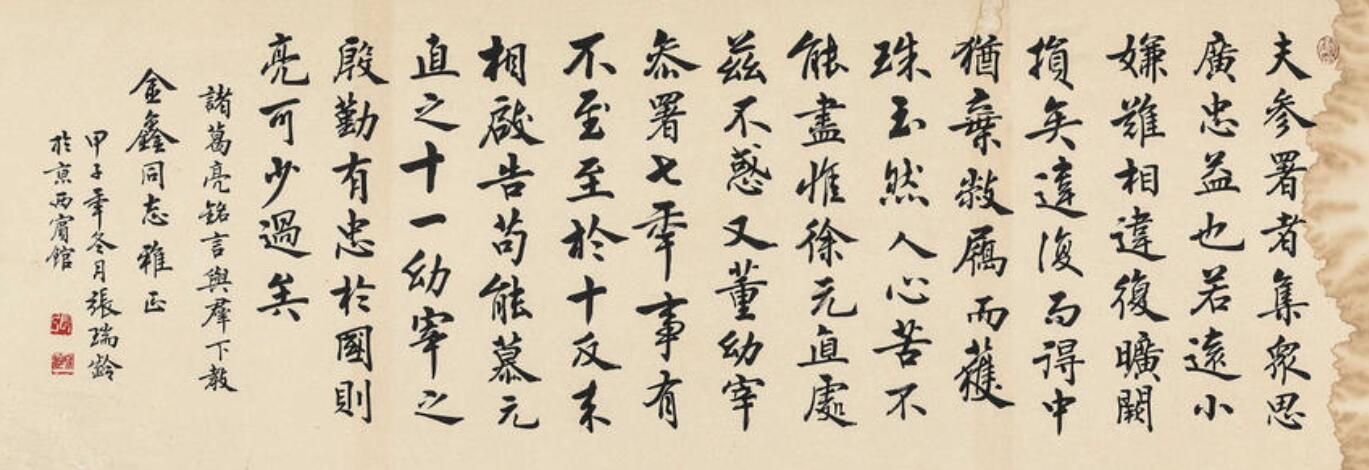 夫參署者集眾思
廣忠益也若遠小
嫌難相違復曠闕
損矣違復而得中
猶棄敝屩而獲
珠玉然人心苦不
能盡惟徐元直處
茲不惑又董幼宰
參署七年事有
不至至於十反未
相啟告苟能慕元
直之十一幼宰之
殷勤有忠於國則
亮可少過矣
諸葛亮銘言與羣下教
金鑫同志雅正
甲子年冬月張瑞齡
於京西賓館